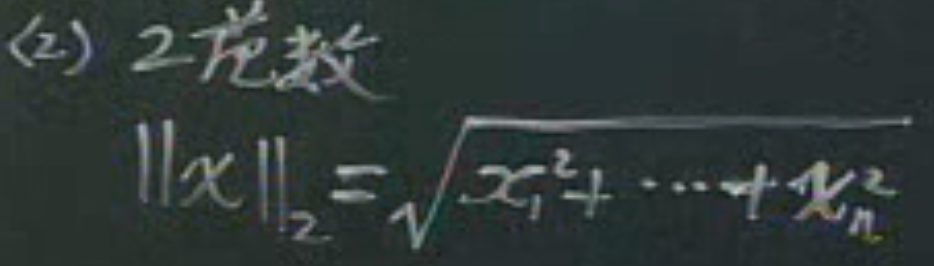 (2) 2范数
‖x‖₂ = √(x₁² + ⋯ + xₙ²)